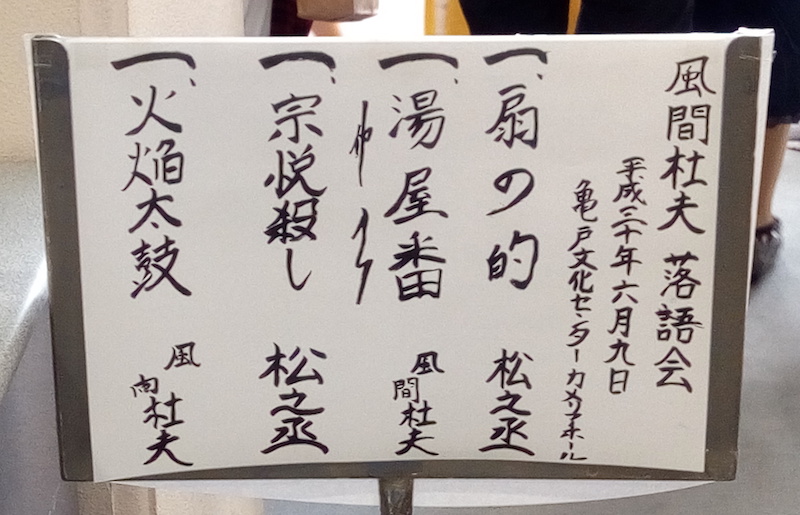 風間杜夫 落語会
平成三十年六月九日
亀戸文化センターカメリアホール
一、扇の的 松之丞
一、湯屋番 風間杜夫
仲入り
一、宗悦殺し 松之丞
一、火焔太鼓 風間杜夫